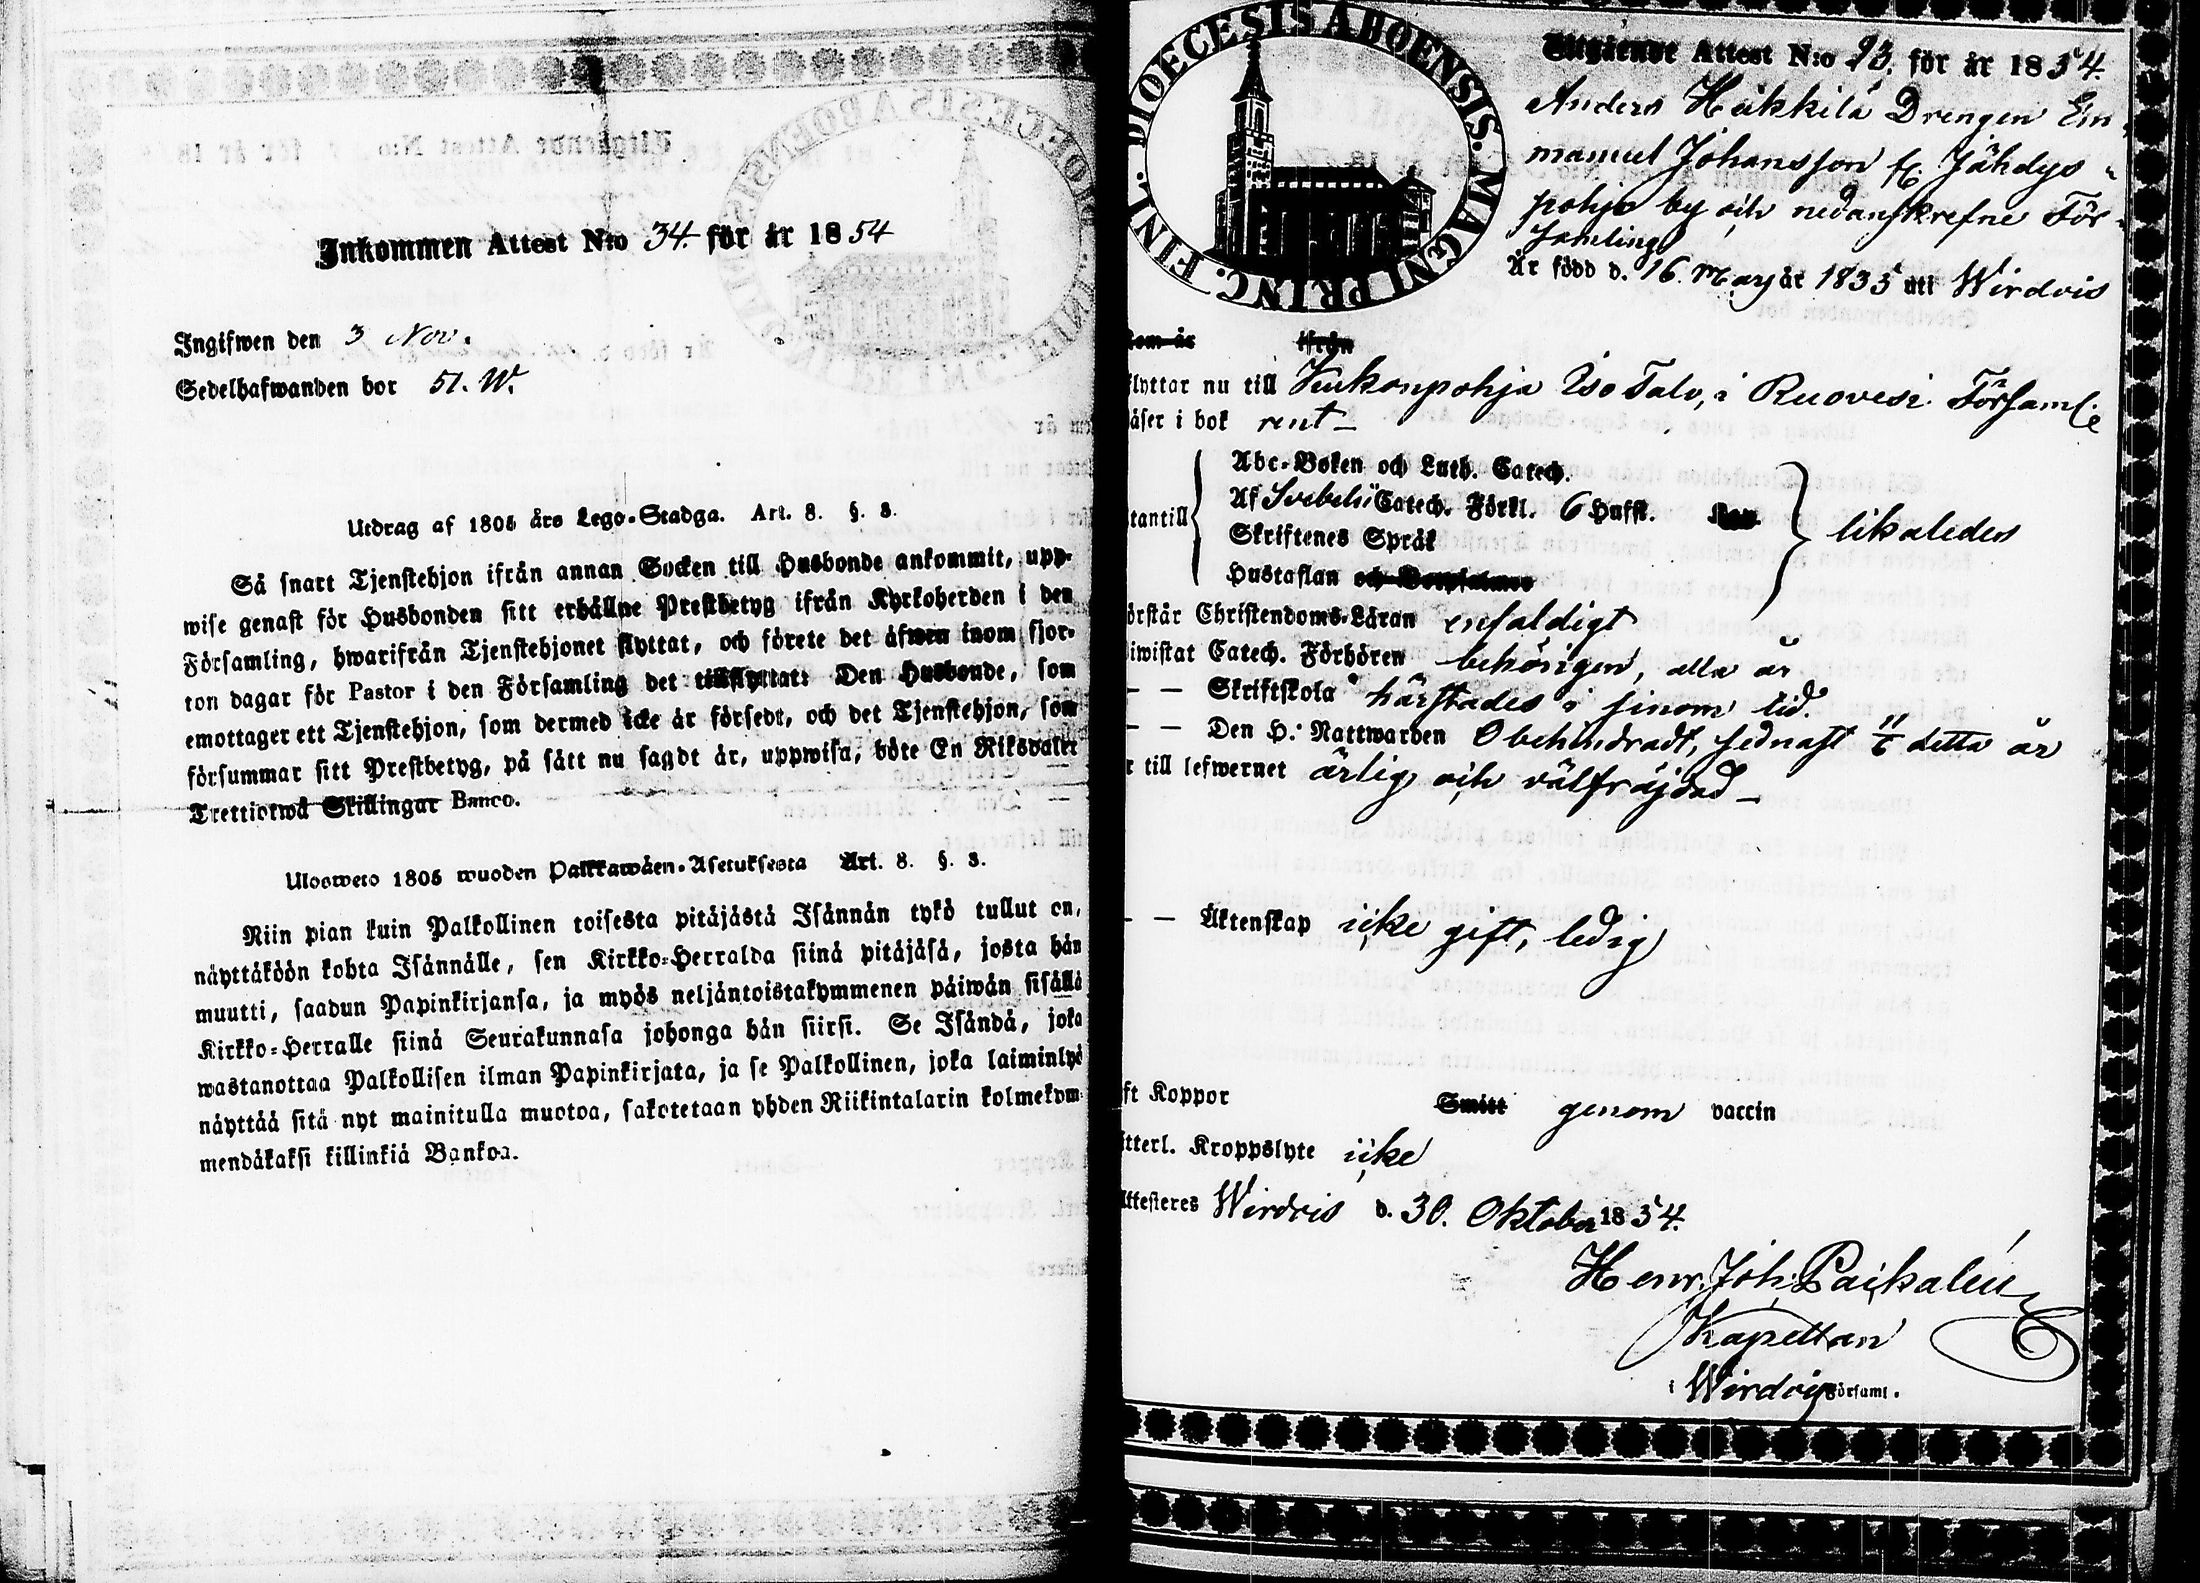 Inkommen Attest N:o 34. för år 1854
Ingifwen den 3 Nov.
Sedelhafwanden bor 51. W.
Utdrag af 1805 års Lego-Stadga. Art. 8. §. 3.
Så snart Tjenstehjon ifrån annan Socken till Husbonde ankommit, upp-
wise genast för Husbonden sitt erhållne Prestbetyg ifrån Kyrkoherden i den
Församling, hwarifrån Tjenstehjonet flyttat, och förete det äfwen inom fjor-
ton dagar för Pastor i den Församling det tillflyttat: Den Husbonde, som
emottager ett Tjenstehjon, som dermed icke är försedt, och det Tjenstehjon, som
försummar sitt Prestbetyg, på sätt nu sagdt är, uppwisa, böte En Riksdaler
Trettiotwå Skillingar Banco.
Ulosweto 1805 wuoden Palkkawäen-Asetuksesta Art. 8. §. 3.
Niin pian kuin Palkollinen toisesta pitäjästä Isännän tykö tullut on,
näyttäköön kohta Isännälle, sen Kirkko-Herralda siinä pitäjäsä, josta hän
muutti, saadun Papinkirjansa, ja myös neljäntoistakymmenen päiwän sisällä
Kirkko-Herralle siinä Seurakunnasa johonga hän siirsi. Se Isändä, joka
wastanottaa Palkollisen ilman Papinkirjata, ja se Palkollinen, joka laiminlyö
näyttää sitä nyt mainitulla muotoa, sakotetaan yhden Riikintalarin kolmekym-
mendäkaksi killinkiä Bankoa.
DIOECESIS ABOENSIS. MAGNI PRINC. FINL.
Utgående Attest N:o 93. för år 1854.
Anders Häkkilä Drengen Em-
manuel Johansson fr. Jähdys-
pohja by och nedanskrefne För-
samling
Är född d. 16 Maj år 1835 uti Wirdois
Som är ifrån
flyttar nu till Kukonpohja Iso Talo, i Ruovesi Församl:e
läser i bok rent
utantill
Abc-Boken och Luth. Catech.
Af Svebelii Catech. Förkl. 6 Hufst.
Skriftenes Språk
Hustaflan och Botpsalmer
likaledes
örstår Christendoms-Läran enfaldigt
iwistat Catech. Förhören behörigen, alla år
– – Skriftskola härstades i sinom tid.
– – Den H. Nattwarden Obehindradt, sednast 11/6 detta år
r till lefwernet ärlig och välfräjdad
– – Äktenskap icke gift, ledig
ft Koppor Smitt genom vaccin
itterl. Kroppslyte icke
Attesteres Wirdois d. 30. Oktober 1854.
Henr. Joh. Paikalén
Kapellan
i Wirdois Församl.